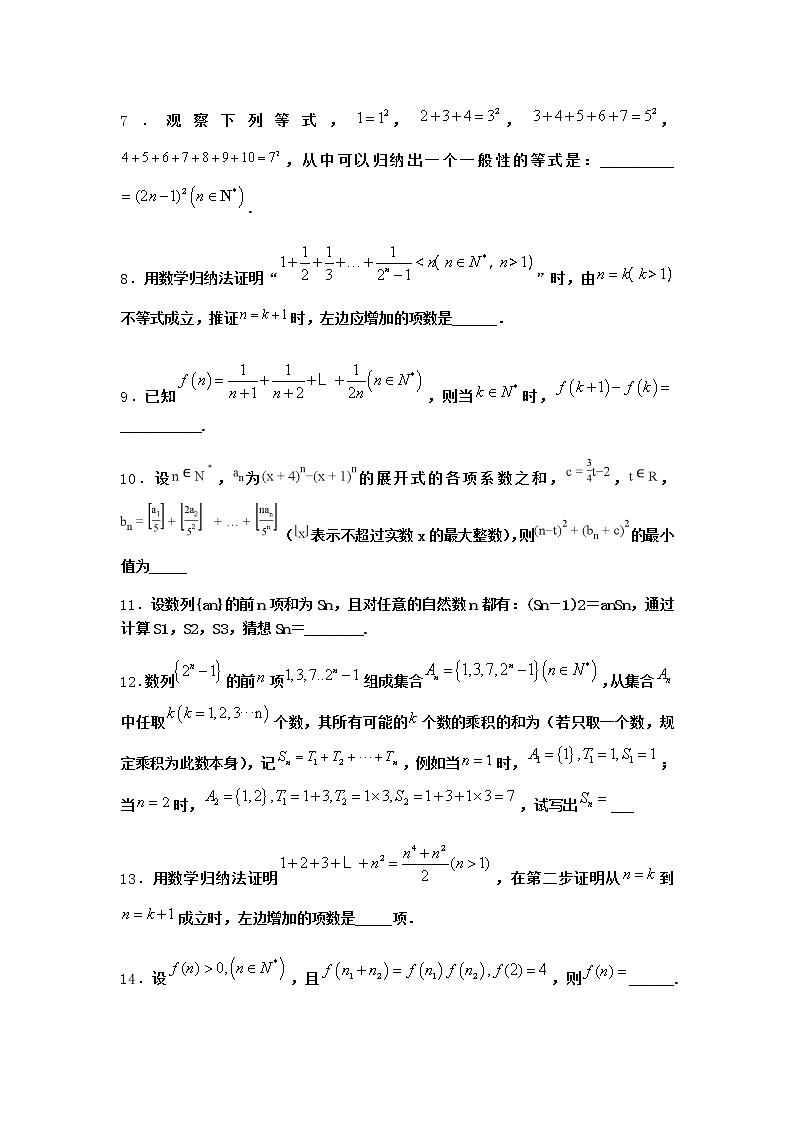 7．观察下列等式，1=1²，2+3+4=3²，3+4+5+6+7=5²，
4+5+6+7+8+9+10=7²，从中可以归纳出一个一般性的等式是：__________
=(2n−1)²(n∈N*).
8．用数学归纳法证明“1+1/2+1/3+…+1/(2ⁿ−1)<n( n∈N*, n>1)”时，由n=k( k>1)
不等式成立，推证n=k+1时，左边应增加的项数是______.
9．已知f(n)=1/(n+1)+1/(n+2)+L+1/(2n)(n∈N*)，则当k∈N*时，f(k+1)−f(k)=
___________.
10．设n∈N*，aₙ为(x+4)ⁿ−(x+1)ⁿ的展开式的各项系数之和，c=3/4t−2，t∈R，
bₙ=[a₁/5]+[2a₂/5²]+…+[naₙ/5ⁿ]（[x]表示不超过实数x的最大整数），则(n−t)²+(bₙ+c)²的最小
值为_____
11．设数列{an}的前n项和为Sn，且对任意的自然数n都有：(Sn－1)2＝anSn，通过
计算S1，S2，S3，猜想Sn＝________.
12.数列{2ⁿ−1}的前n项1,3,7..2ⁿ−1组成集合Aₙ={1,3,7,2ⁿ−1}(n∈N*),从集合Aₙ
中任取k(k=1,2,3···n)个数，其所有可能的k个数的乘积的和为（若只取一个数，规
定乘积为此数本身），记Sₙ=T₁+T₂+···+Tₙ，例如当n=1时，A₁={1},T₁=1,S₁=1；
当n=2时，A₂={1,2},T₁=1+3,T₂=1×3,S₂=1+3+1×3=7，试写出Sₙ=___
13．用数学归纳法证明1+2+3+L+n²=(n⁴+n²)/2(n>1)，在第二步证明从n=k到
n=k+1成立时，左边增加的项数是_____项.
14．设f(n)>0,(n∈N*)，且f(n₁+n₂)=f(n₁)f(n₂),f(2)=4，则f(n)=______.